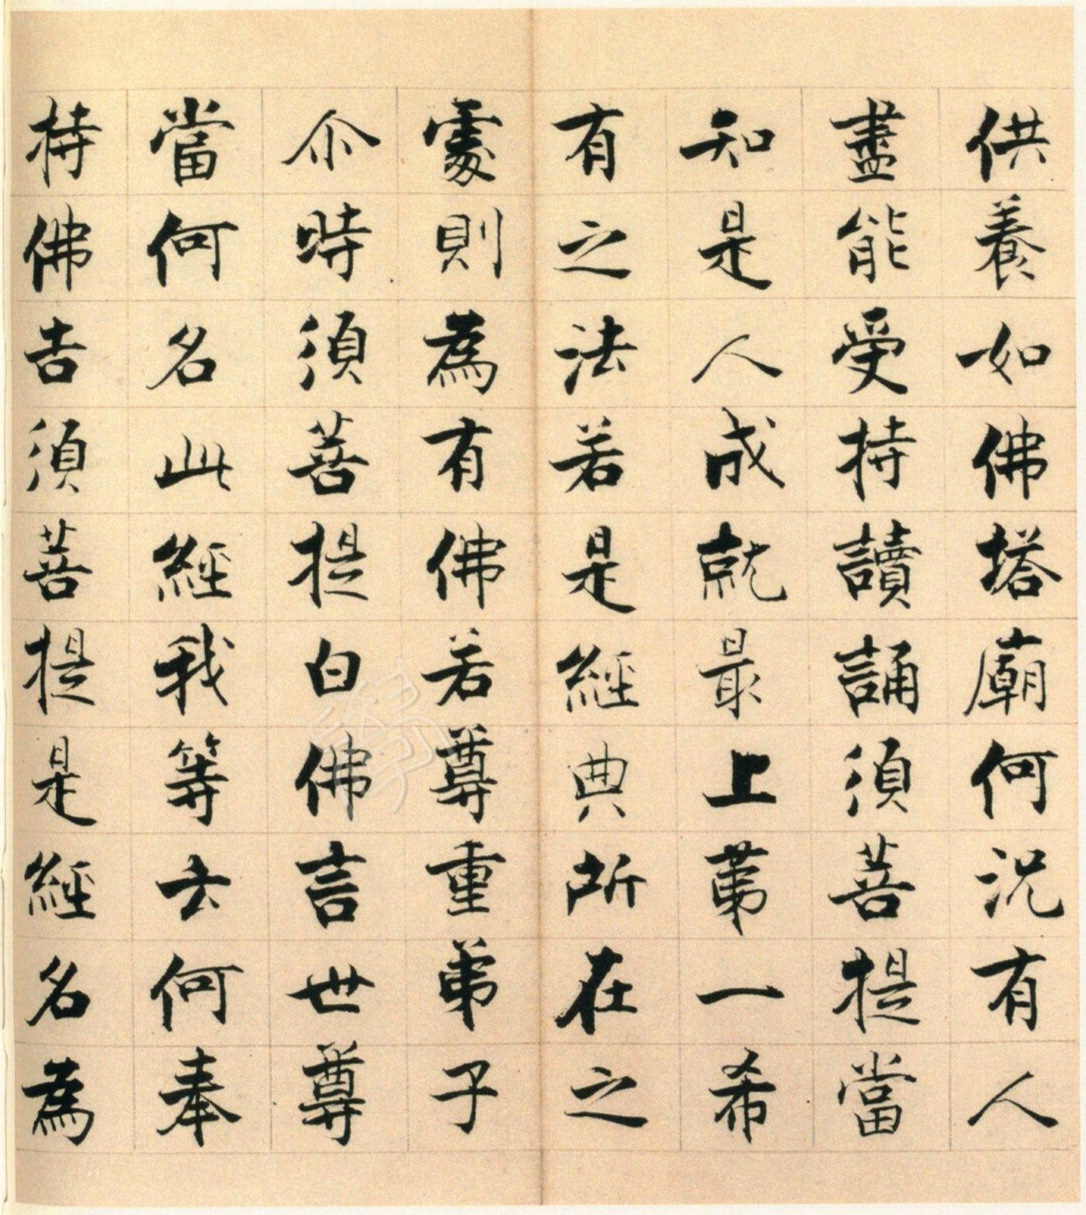 供養如佛塔廟何況有人
盡能受持讀誦須菩提當
知是人成就最上苐一希
有之法若是經典所在之
處則為有佛若尊重弟子
尒時須菩提白佛言世尊
當何名此經我等云何奉
持佛告須菩提是經名為